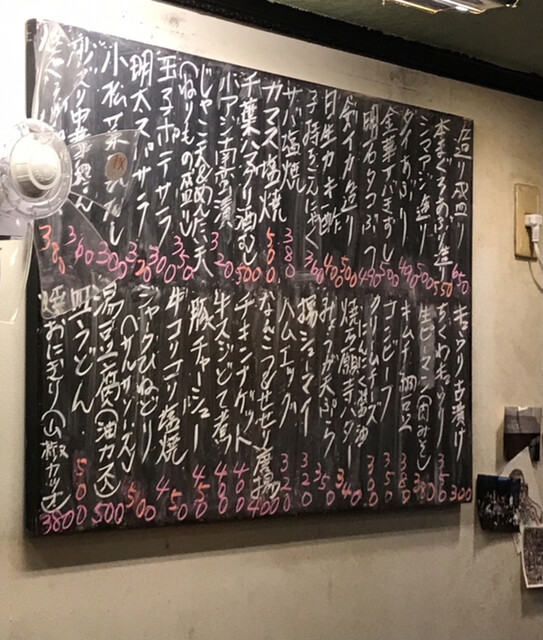 造り盛皿り 650
本まぐろあぶり造り 550
シマアジ造り 500
タイあぶり 490
金葉サバきずし
明石タコぶつ 490
剣イカ造り 500
日生カキ酢
子持ちこんにゃく 360
サバ塩焼 380
カマス塩焼 500
千葉ハマグリ酒むし 500
小アジ南蛮漬 320
じゃこ天&めんたい天
(ねりもの盛り) 350
玉子ポテサラ 300
明太スパサラ 320
小松菜おひたし 300
ズリ中華
キウリ古漬け 300
ちくわキュウリ 350
生ピーマン(肉みそ) 380
キムチ納豆 380
コンビーフ 350
クリームチーズ 300
にんにく醤油
焼万願寺バター 340
みょうが天ぷら 350
揚シューマイ 320
ハムエッグ 320
なんこつ&せせり唐揚 400
チキンナゲット
牛スジどて煮 480
豚チャーシュー 450
牛コリコリ塩焼 450
ジャークひねどり 500
湯豆腐(油カス) 500
皿うどん 500
焼おにぎり(山椒カツオ) 380